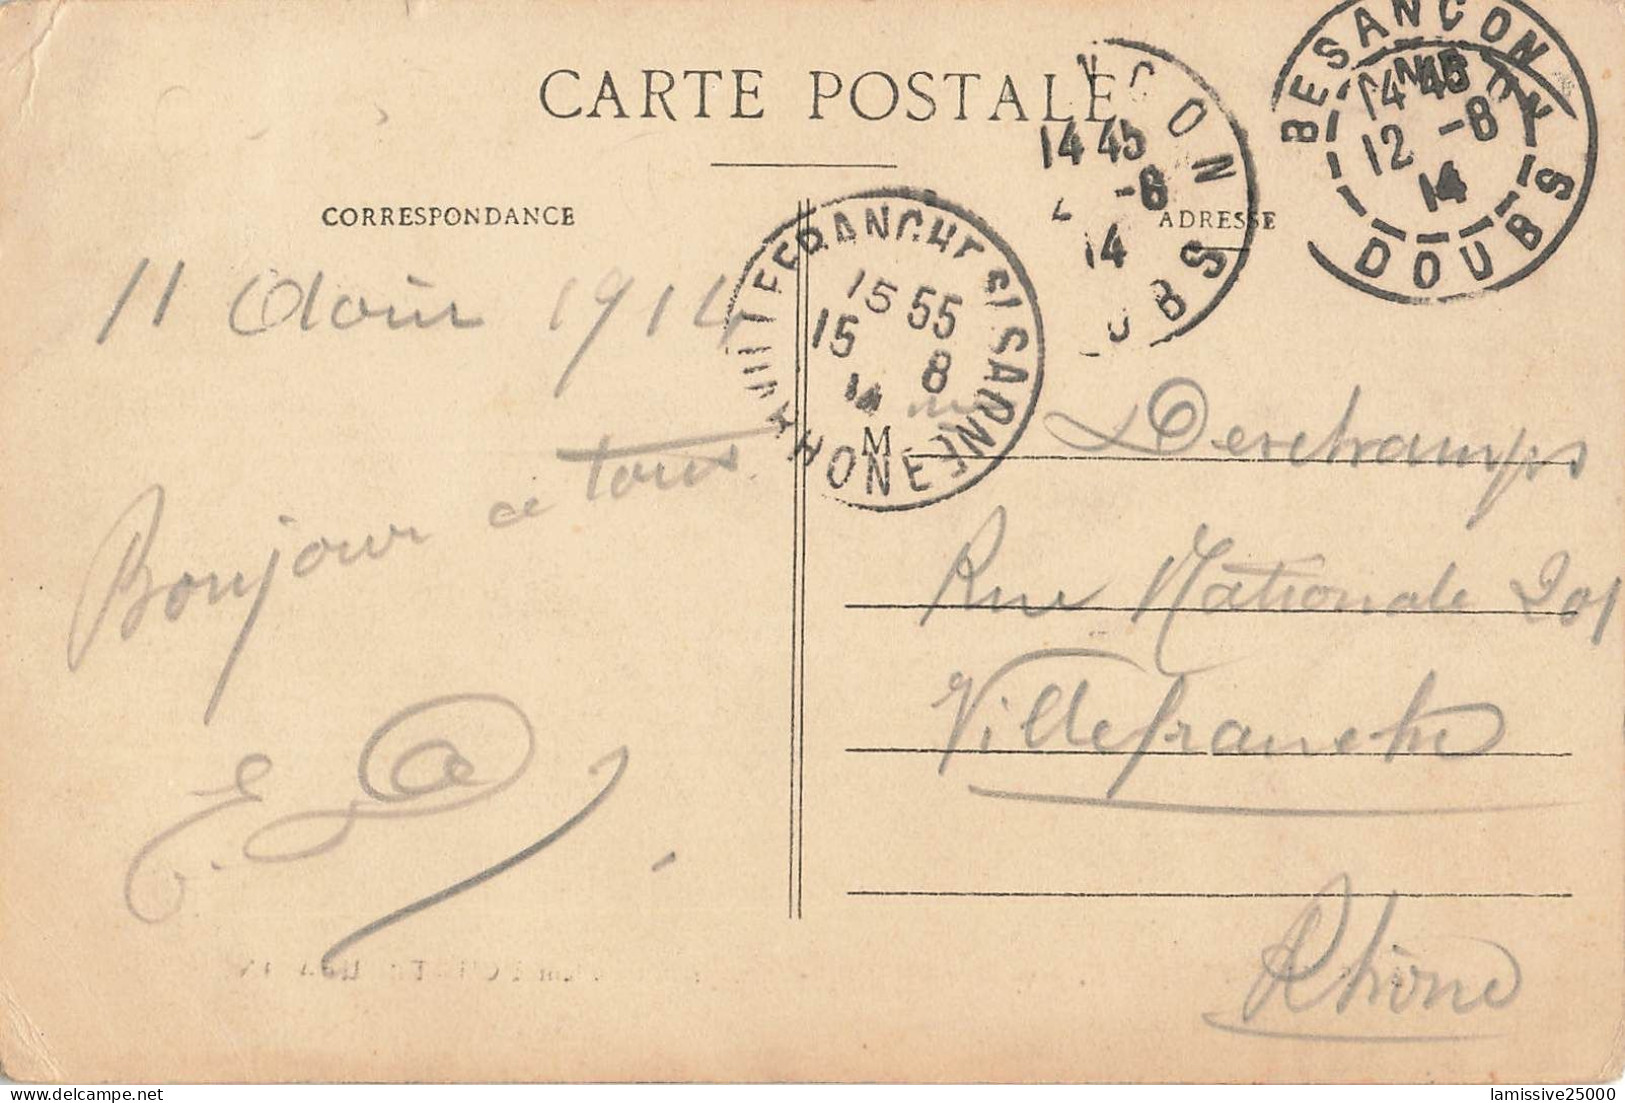 CARTE POSTALE
CORRESPONDANCE
ADRESSE
BESANÇON
14 45
12 -8
14
DOUBS
NÇON
14 45
-8
14
UBS
VILLEFRANCHE S/ SAÔNE
15 55
15 8
14
RHÔNE
11 Août 1914
Bonjour à tous
E.
M
Deschamps
Rue Nationale 201
Villefranche
Rhône
lamissive25000